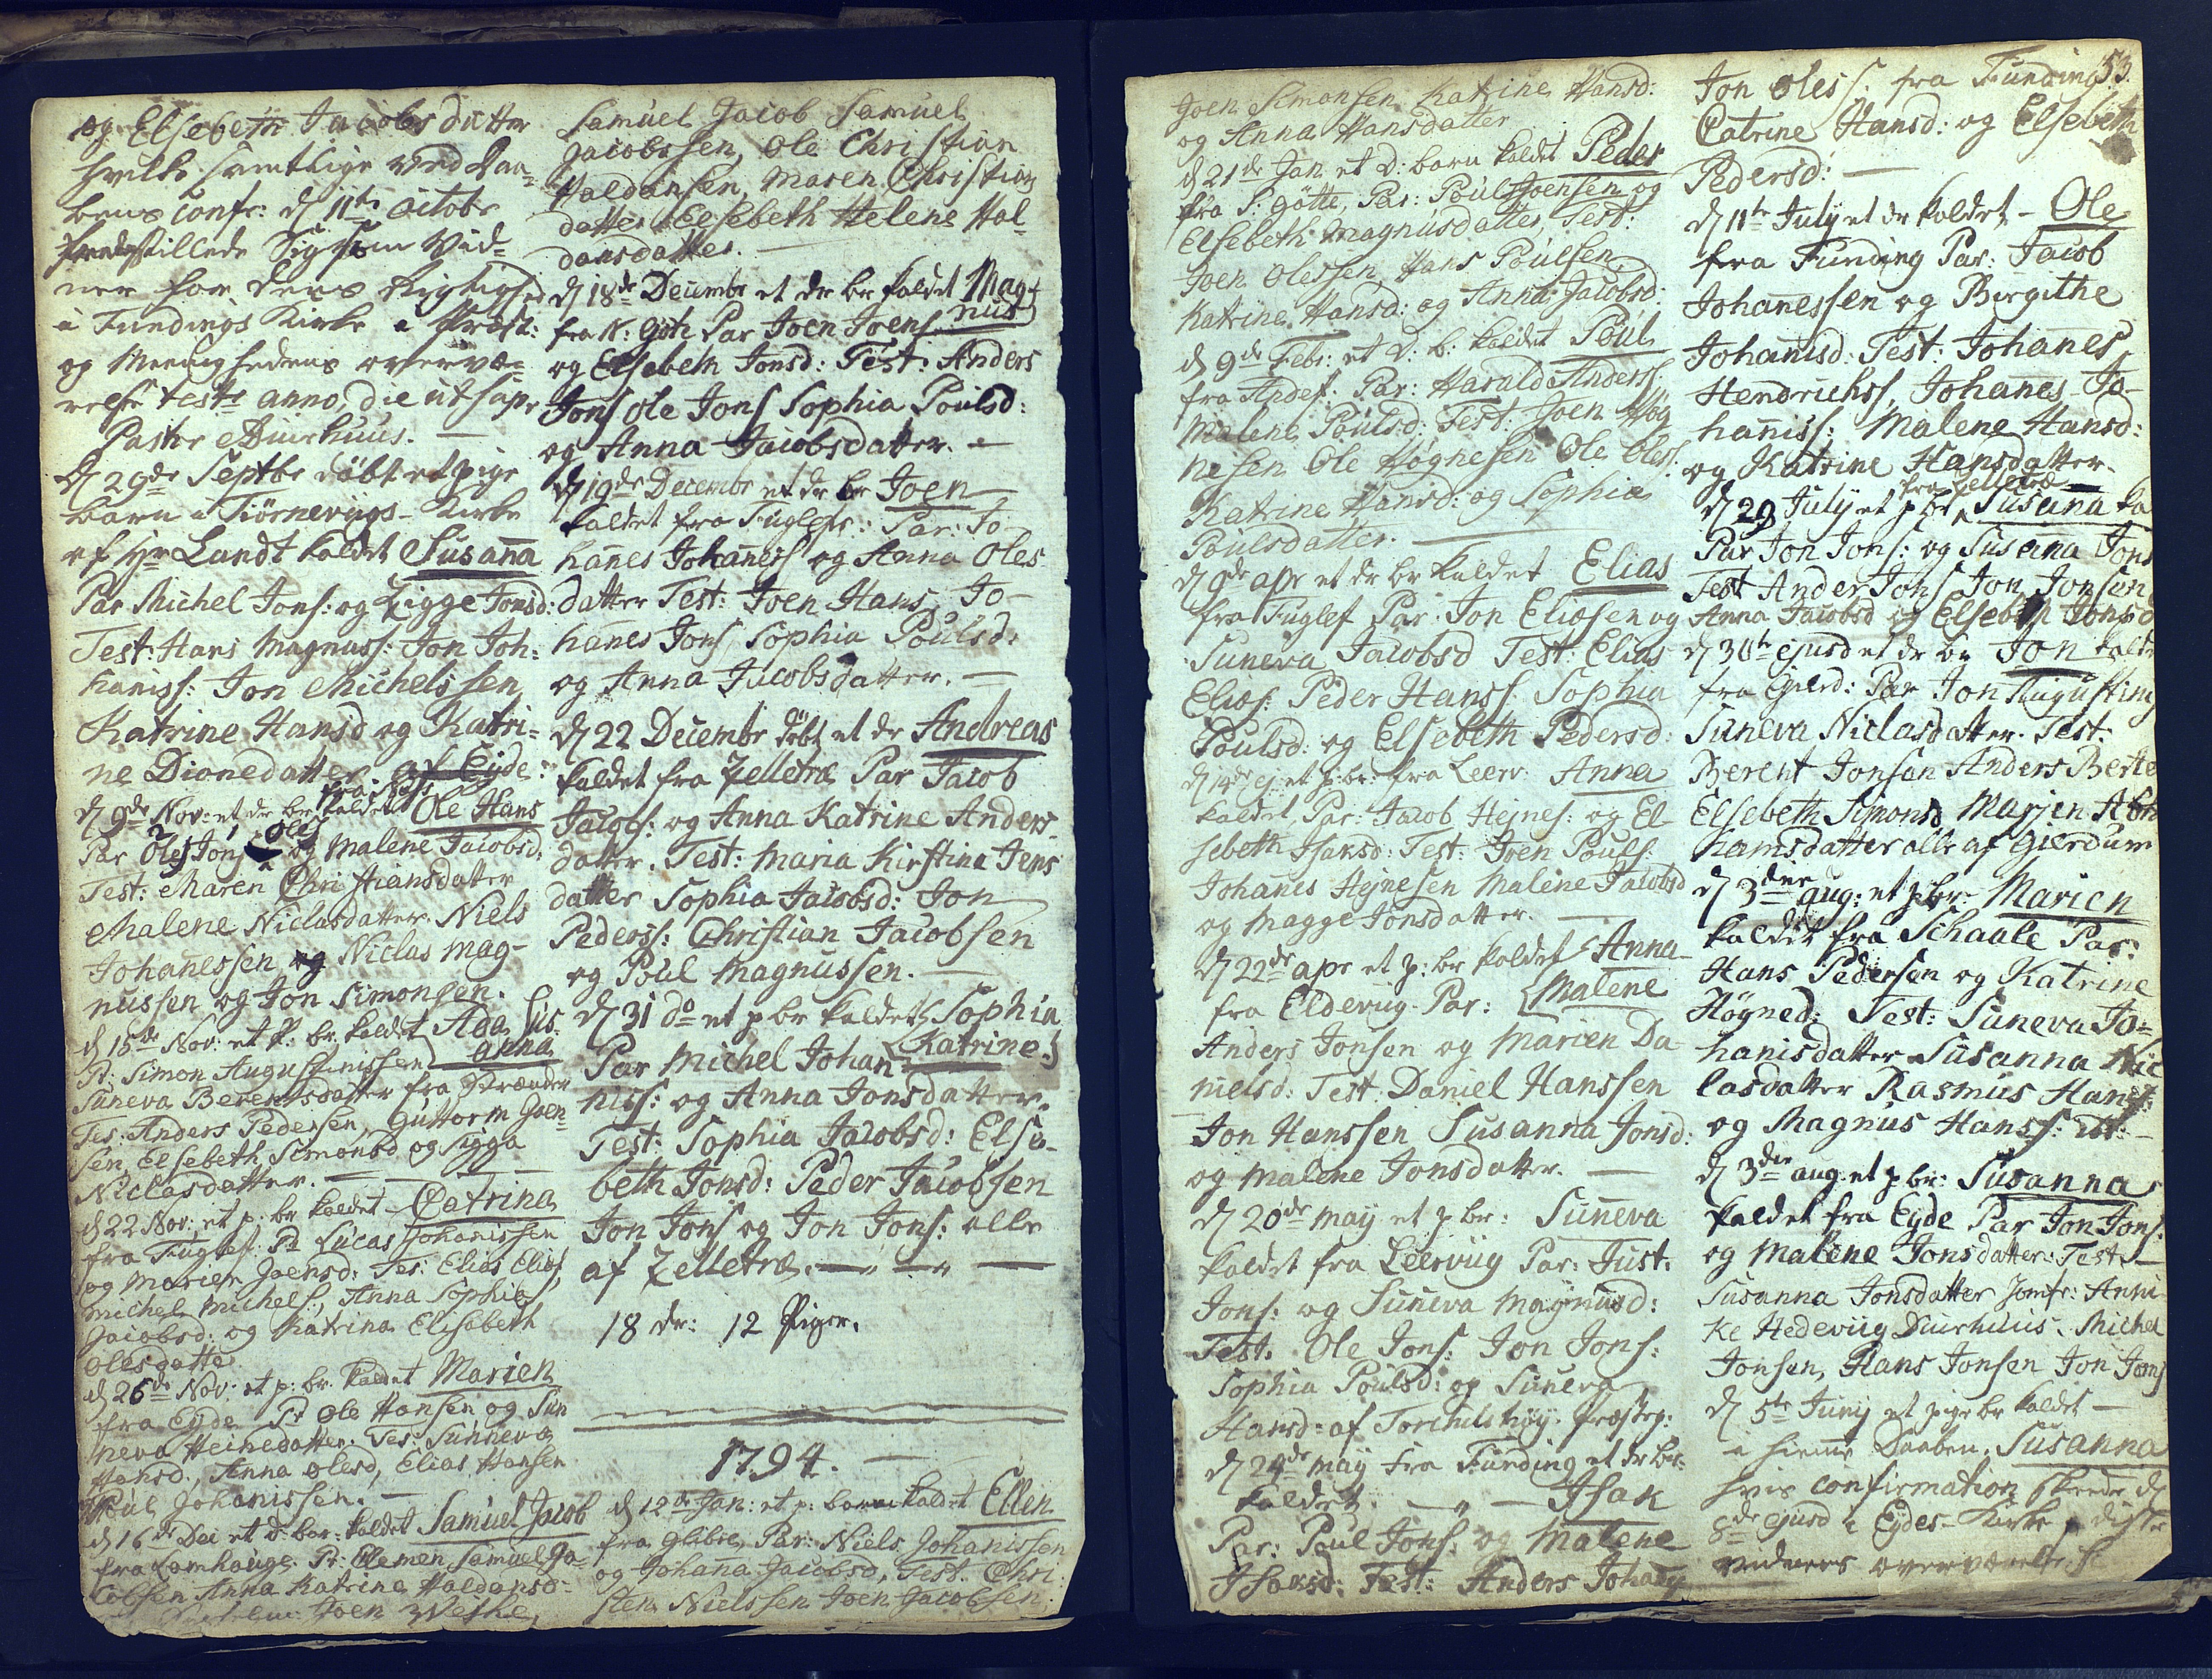 og Elsebeth Jacobsdatter
hvilke samtlige ved Daa=
bens Confr: d 11te Octobr
fremstillede Sig som Vid=
ner for dens Rigtighed
i Fundings Kirke i Præst:
og Meenighedens overvæ=
relse test: anno, die ut supr
Pastor Duurhuus. —
D 29de Septbr döbt et pige
barn i Tiörnevigs-Kirke
af Hr Lundt kaldet Susanna
Par Michel Jons: og Zigge Jonsd:
Test: Hans Magnuss: Jon Joh:
haniss: Jon Michelssen
Katrine Hansd og Katri=
ne Dionedatter. af Eyde:
d 9de Nov: et dr br kaldet Ole Hans
Par Ole Jons Oles og Malene Jacobsd:
Test: Maren Christiansdatter
Malene Niclasdatter. Niels
Johanessen og Niclas Mag-
nussen og Jon Simonsen.
d 15de Nov: et P: br. kaldet Ada Sus
anna
Pr: Simon Augustinissen
Suneva Berentsdatter fra
Tes: Anders Pedersen, Guttorm Joen
sen, Elsebeth Simonsd og Sigga
Niclasdatter. —
d 22 Nov: et p: br kaldet Catrina
fra Fuglef: Pr Lucas Johanissen
og Marien Joensd: Tes: Elias Elias
Michel Michels, Anna Sophia
Jacobsd: og Katrina Elisabeth
Olesdatte
d 26de Nov: et p: br. kaldet Marien
fra Eyde Pr Ole Hansen og Sün
neva Heinedatter. Tes: Sunneva
Hansd. Anna Olesd, Elias Hansen
Poul Johanissen. —
d 16de Dec et d: bar: kaldet Samuel Jacob
fra Lamhauge. Pr: Clemen Samuel Ja=
cobsen Anna Katrina Haldansd=
Joen Weihe,
Samuel Jacob Samuel
Jacobssen, Ole Christian
Haldansen, Maren Christian
datter Elsebeth Helene Hal
dansdatter. —
d 18de Decembr et dr br kaldet Mag-
nus
fra N: Göth Par Joen Joens
og Elsebeth Jonsd: Test: Anders
Jons Ole Jons Sophia Poulsd:
og Anna Jacobsdatter. —
d 19de Decembr et dr br Joen
kaldet fra Fuglefr: Par: Jo-
hanes Johaness og Anna Oles
datter Test: Joen Hans Jo-
hanes Jons Sophia Poulsd:
og Anna Jacobsdatter. —
d 22 Decembr döbt et dr Andreas
kaldet fra Zelletræ Par Jacob
Jacobs: og Anna Katrine Anders-
datter. Test: Maria Kirstina Jens
datter Sophia Jacobsd: Jon
Pederss: Christian Jacobsen
og Poul Magnussen. —
d 31 do et p br kaldet Sophia
Katrine
Par Michel Johan-
nis: og Anna Jonsdatter.
Test: Sophia Jacobsd: Else-
beth Jonsd: Peder Jacobsen
Jon Jons og Jon Jons: alle
af Zelletræ. —
18 dr: 12 Piger.
1794. —
d 12de Jan: et p: barn kaldet Ellen
fra Glibre, Par: Niels Johanissen
og Johana Jacobsd, Test. Chri
sten Nielssen Joen Jacobsen.
Joen Simonsen Katrine Hansd:
og Anna Hansdatter
d 21de Jan et D: barn kaldet Peder
fra S: götte, Par: Poul Joensen og
Elsebeth Magnusdatter, Test:
Joen Olessen Hans Poulsen
Katrine Hansd: og Anna Jacobsd:
d 9de Febr: et D: b: kaldet Poul
fra Andef: Par: Harald Anderss
Malene Poulsd: Test: Joen Høg
nesen Ole Høgnesen Ole Oless
Katrine Hansd: og Sophia
Poulsdatter. —
d 9de apr et dr br kaldet Elias
fra Fuglef Par: Jon Eliasen og
Suneva Jacobsd Test: Elias
Elias: Peder Hanss Sophia
Poulsd: og Elsebeth Pedersd.
d 14de ej et p: br: fra Leerv: Anna
kaldet, Par: Jacob Hejnes: og El
sebeth Isaksd: Test: Joen Pouls
Johanes Hejnesen Malene Jacobsd
og Magge Jonsdatter. —
d 22de apr et p: br kaldet Anna
Malene
fra Eldeviig Par:
Anders Jonsen og Marien Da
nielsd: Test: Daniel Hanssen
Jon Hanssen Susanna Jonsd:
og Malene Jonsdatter. —
d 20de May et p br: Suneva
kaldet fra Leerviig Par: Just:
Jons: og Suneva Magnusd:
Test. Ole Jons: Jon Jons:
Sophia Poulsd: og Suneva
Hansd: af Torchilshöy. Præsteg:
d 24de May fra Funding et dr br:
kaldet. — Isak
Par: Poul Jons: og Malene
Isaksd: Test: Anders Johans
53.
Jon Oless. fra Funding
Catrine Hansd: og Elsebeth
Pedersd: —
d 11te July et dr kaldet - Ole
fra Funding Par: Jacob
Johanessen og Birgithe
Johanisd: Test: Johanes
Hendrichss, Johanes Jo-
haniss: Malene Hansd:
og Katrine Hansdatter.
fra Zelletræ
d 29 July et p br Susana ka
Par Jon Jons: og Susana Jons
Test Ander Jons Jon Jonsen
Anna Jacobsd og Elsebeth Jonsd
d 30te ejusd et dr br Jon kaldet
fra Gierd: Par Jon Augustins
Suneva Niclasdatter. Test:
Berent Jonsen Anders Berte
Elsebeth Simonsd Marjen Abra
hamsdatter alle af Gierdum
d 3die aug: et p br: Marien
kaldet fra Schaale Par:
Hans Pedersen og Katrine
Högned: Test: Suneva Jo=
hanisdatter Susanna Nic
lasdatter Rasmus Hanss:
og Magnus Hanss:
d 3die aug. et p br: Susanna
kaldet fra Eyde Par Jon Jons:
og Malene Jonsdatter: Test:
Susanna Jonsdatter Jomfr: Anni
ke Hedeviig Duurhuus. Michel
Jonsen, Hans Jonsen Jon Jons
d 5te Junij et pige br kaldet —
i hieme Daaben. Susanna
hvis confirmation skeede d
8de ejusd i Eydes-Kirke i disse
vidners overværelse